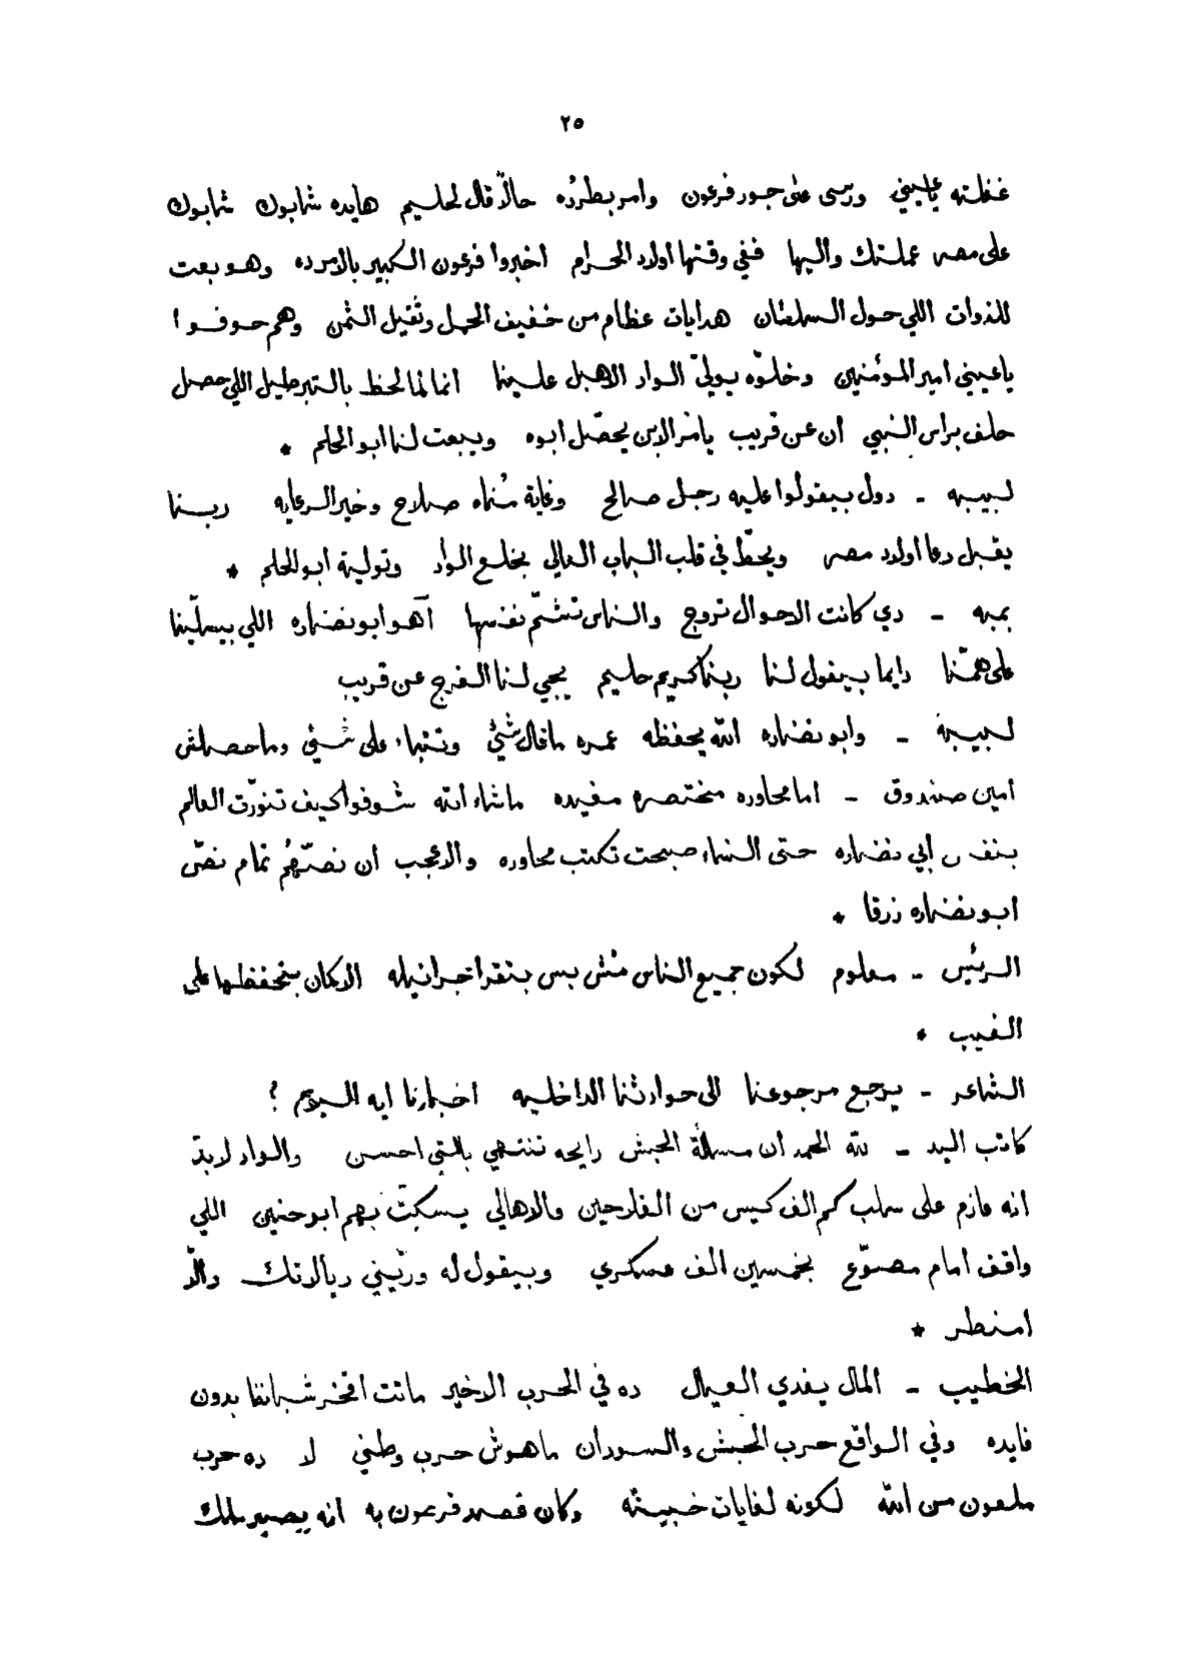 ٢٥
غفلته ياعيني ورسى على جور فرعون وامر بطرده حالاً قال لحليم هايده شابوك شابوك
على مصر عملتك واليها ففي وقتها اولاد الحرام اخبروا فرعون الكبير بالامر ده وهو بعت
للذوات اللي حول السلطان هدايات عظام من خفيف الحمل وثقيل الثمن وهم حوفوا
ياعيني امير المؤمنين وخلّوه يولّي الواد الاهبل علينا انما لما لحظ بالتبرطيل اللي حصل
حلف براس النبي ان عن قريب يامر الابن يحصّل ابوه ويبعت لنا ابو الحلم *
لبيبه - دول بيقولوا عليه رجل صالح وغاية مُناه صلاح وخير الرعايه ربنا
يقبل دعا اولاد مصر ويحطّ في قلب الباب العالي بخلع الواد وتولية ابو الحلم *
بمبه - دي كانت الاحوال تروج والناس تشمّ نفسها آهو ابو نضاره اللي بيسلّينا
على همّنا دايما بيقول لنا ربنا كريم حليم يجي لنا الفرج عن قريب
لبيبة - وابو نضاره الله يحفظه عمره ما قال شئ وتنباء على شئ وما حصلش
امين صندوق - اما محاوره مختصره مفيده ماشاء الله شوفوا كيف تنوّرت العالم
بنفس ابي نضاره حتى النساء صبحت تكتب محاوره والاعجب ان نصّهم تمام نصّ
ابو نضاره زرقا *
الريّس - معلوم لكون جميع الناس مش بس بتقرا جرانيله الا كمان بتحفظها على
الغيب *
الشاعر - يرجع مرجوعنا الى حوادثنا الداخليه اخبارنا ايه اليوم ؟
كاتب اليد - لله الحمد ان مسالة الحبش رايحه تنتهي بالتي احسن والواد لابدّ
انه عازم على سلب كم الف كيس من الفلاحين والاهالي يسكّت بهم ابو حنين اللي
واقف امام مصوّع بخمسين الف عسكري وبيقول له ورّيني ريالاتك والاّ
امنطر *
الخطيب - المال يفدي العيال ده في الحرب الاخير ماتت افخر شباننا بدون
فايده وفي الواقع حرب الحبش والسودان ماهوش حرب وطني لا ده حرب
ملعون من الله لكونه لغايات خبيثه وكان قصد فرعون به انه يصير ملك